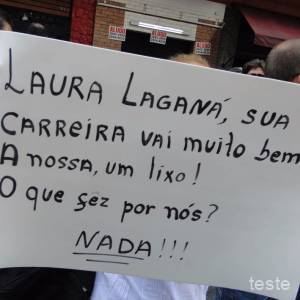 ALUGO
ALUGO
LAURA LAGANÁ, SUA
CARREIRA VAI MUITO BEM
A NOSSA, UM LIXO!
O QUE FEZ POR NÓS?
NADA!!!
teste